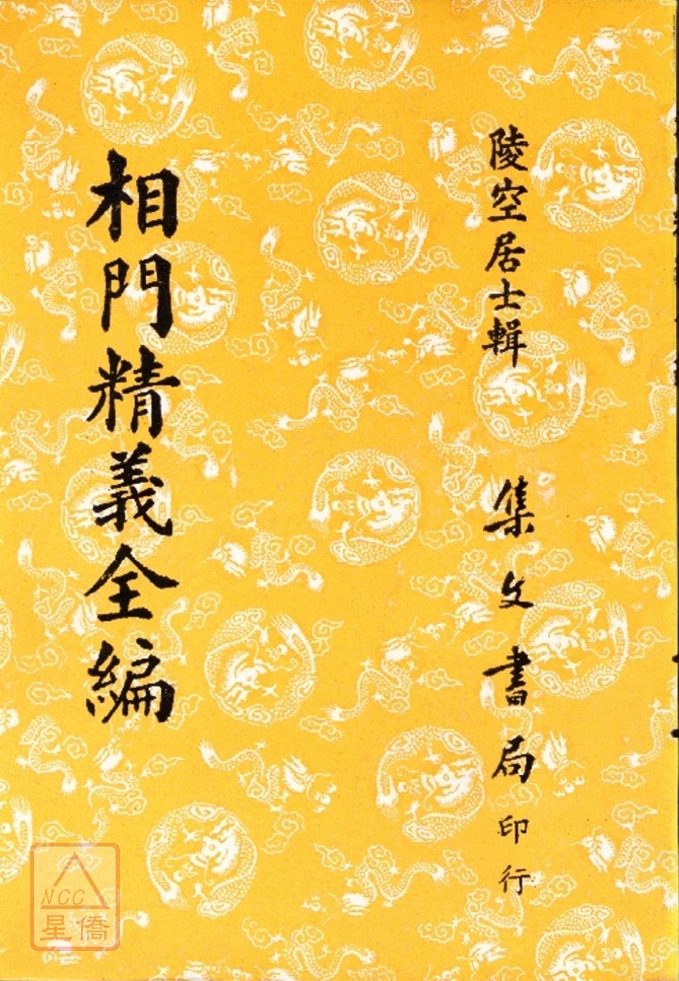 陵空居士輯 集文書局印行
相門精義全編
NCC
星僑